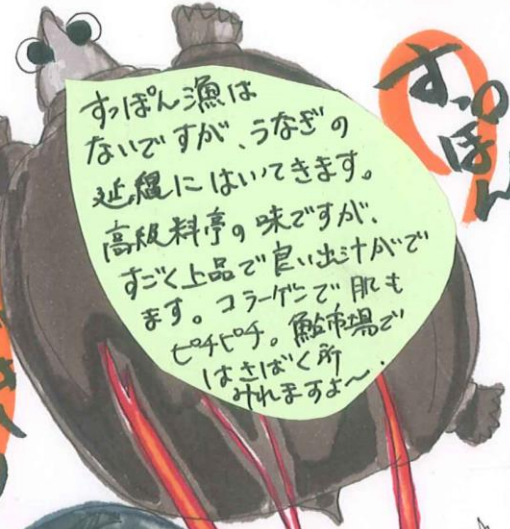 すっぽん
すっぽん漁は
ないですが、うなぎの
延縄にはいってきます。
高級料亭の味ですが、
すごく上品で良い出汁がで
ます。コラーゲンで肌も
ピチピチ。魚市場で
はさばく所
みれますよ〜。